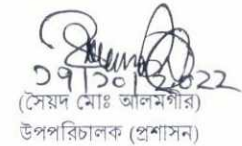 ১৭/১০/২০২২
(সৈয়দ মোঃ আলমগীর)
উপপরিচালক (প্রশাসন)